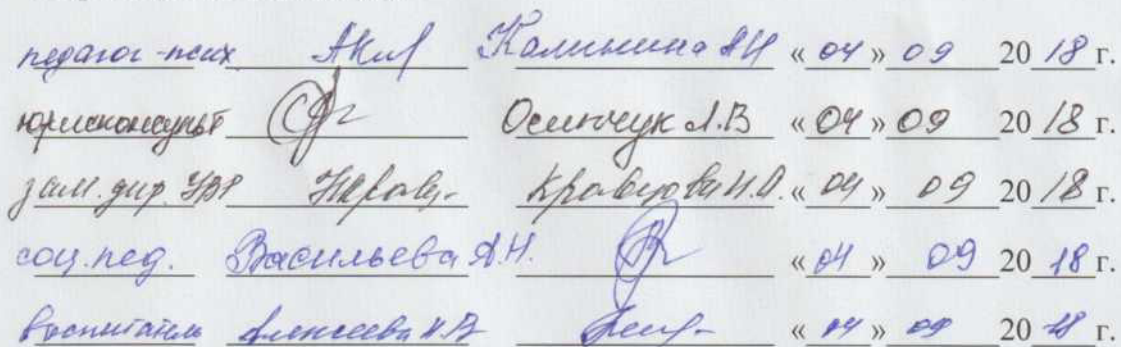 педагог-псих Калинина АИ «04» 09 20 18 г.
юрисконсульт Осипчук Л.В «04» 09 20 18 г.
зам. дир. УВР Кравцова Н.О. «04» 09 20 18 г.
соц. пед. Васильева А.Н. «04» 09 20 18 г.
воспитатель Алексеева Н.В «04» 09 20 18 г.